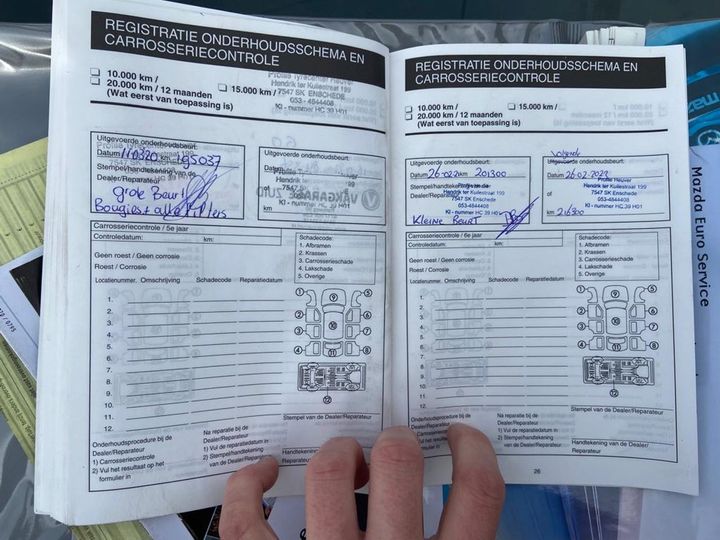 REGISTRATIE ONDERHOUDSSCHEMA EN
CARROSSERIECONTROLE
10.000 km /
15.000 km /
20.000 km / 12 maanden
(Wat eerst van toepassing is)
Hendrik ter Kuilestraat 199
7547 SK ENSCHEDE
053 - 4844408
KI - nummer HC 39 H01
Uitgevoerde onderhoudsbeurt:
Datum 110320 km 195037
Stempel/handtekening van de
Dealer/Reparateur
grote Beurt
Bougies + alle filters
onderhoudsbeurt:
Datum
of
km
Carrosseriecontrole / 6e jaar
Controledatum:
km:
Geen roest / Geen corrosie
Roest / Corrosie
Schadecode:
1. Afbramen
2. Krassen
3. Carrosserieschade
4. Lakschade
5. Overige
Locatienummer Omschrijving Schadecode Reparatiedatum
1.
2.
3.
4.
5.
6.
7.
8.
9.
10.
11.
12.
Stempel van de Dealer/Reparateur
Onderhoudsprocedure bij de
Dealer/Reparateur
1) Carrosseriecontrole
2) Vul het resultaat op het
formulier in
Na reparatie bij de
Dealer/Reparateur
1) Vul de reparatiedatum in
2) Stempel/handtekening
van de Dealer/
Handtekening van de Dealer/
Reparateur
REGISTRATIE ONDERHOUDSSCHEMA EN
CARROSSERIECONTROLE
10.000 km /
15.000 km /
20.000 km / 12 maanden
(Wat eerst van toepassing is)
Uitgevoerde onderhoudsbeurt:
Datum 26-02-22 km 201300
Stempel/handtekening van de
Dealer/Reparateur
Hendrik ter Kuilestraat 199
7547 SK Enschede
053-4844408
KI - nummer HC 39 H01
Kleine Beurt
Volgende
onderhoudsbeurt:
Datum 26-02-2023
of
km 216300
Profile Heuver
Hendrik ter Kuilestraat 199
7547 SK Enschede
053-4844408
KI - nummer HC 39 H01
Carrosseriecontrole / 6e jaar
Controledatum:
km:
Geen roest / Geen corrosie
Roest / Corrosie
Schadecode:
1. Afbramen
2. Krassen
3. Carrosserieschade
4. Lakschade
5. Overige
Locatienummer Omschrijving Schadecode Reparatiedatum
1.
2.
3.
4.
5.
6.
7.
8.
9.
10.
11.
12.
Stempel van de Dealer/Reparateur
Onderhoudsprocedure bij de
Dealer/Reparateur
Na reparatie bij de
Dealer/Reparateur
1) Vul de reparatiedatum in
2) Stempel/handtekening
van de Dealer/
Reparateur
Handtekening van de Dealer/
Reparateur
26
Mazda Euro Service